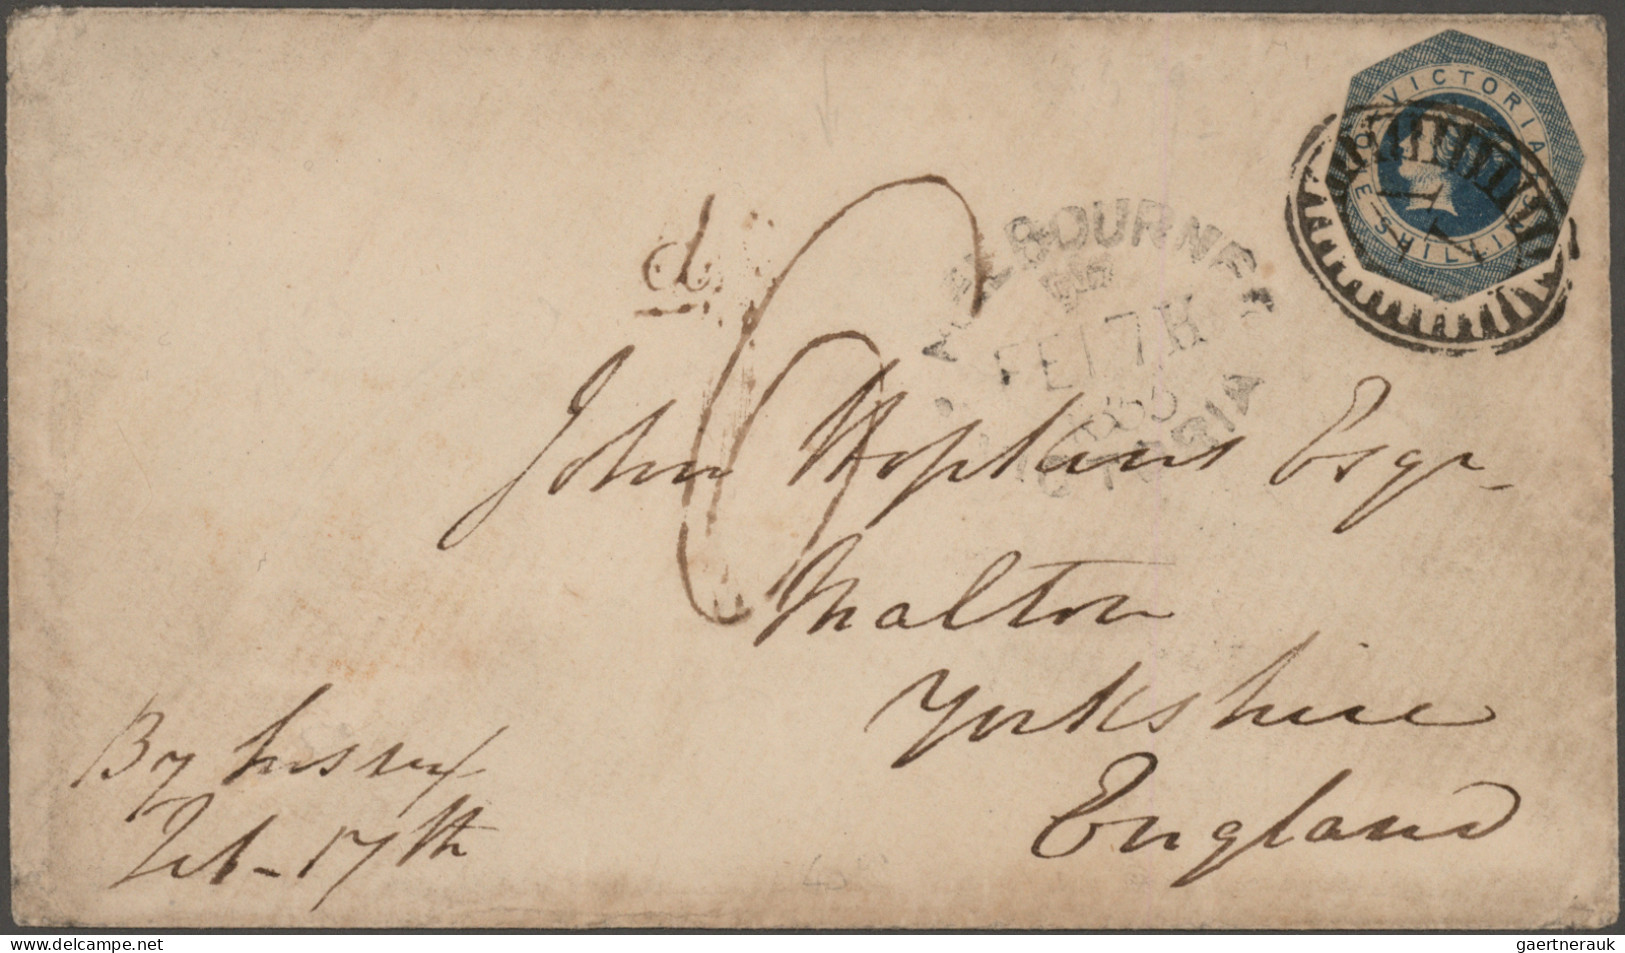 VICTORIA
ONE SHILLING
MELBOURNE
FE 17 H
1855
VICTORIA
d.
6
John Hopkins Esqr
Malton
Yorkshire
England
By
Feb - 17th
https://www.delcampe.net
gaertnerauk